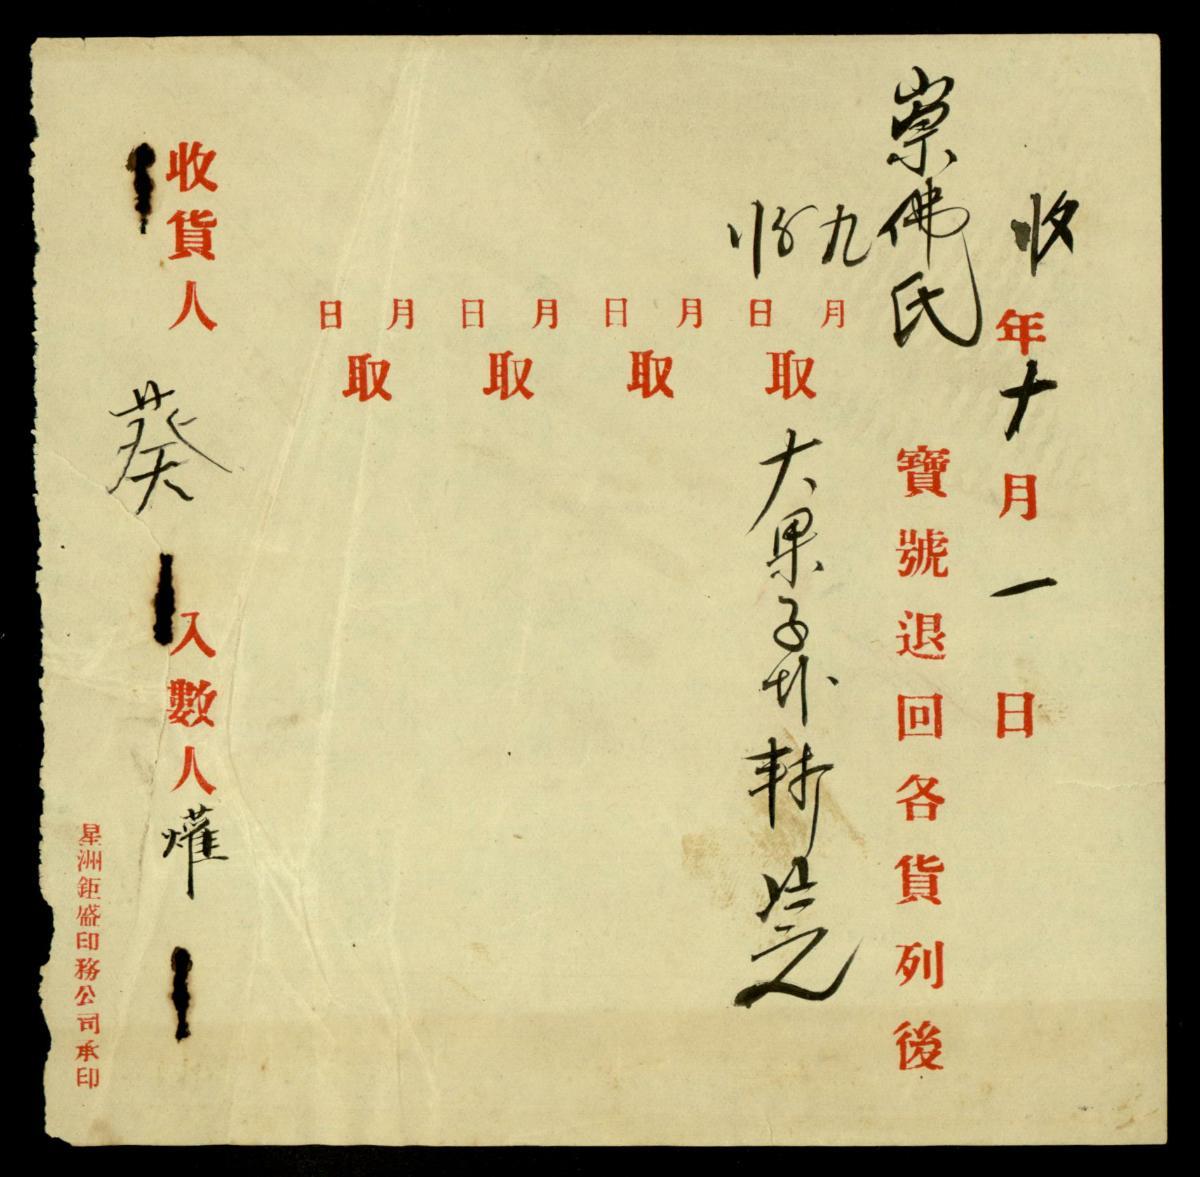 收年十月一日
崇佛氏寶號退回各貨列後
九月日取大果子
月日取
月日取
月日取
收貨人葵
入數人燿
星洲鉅盛印務公司承印